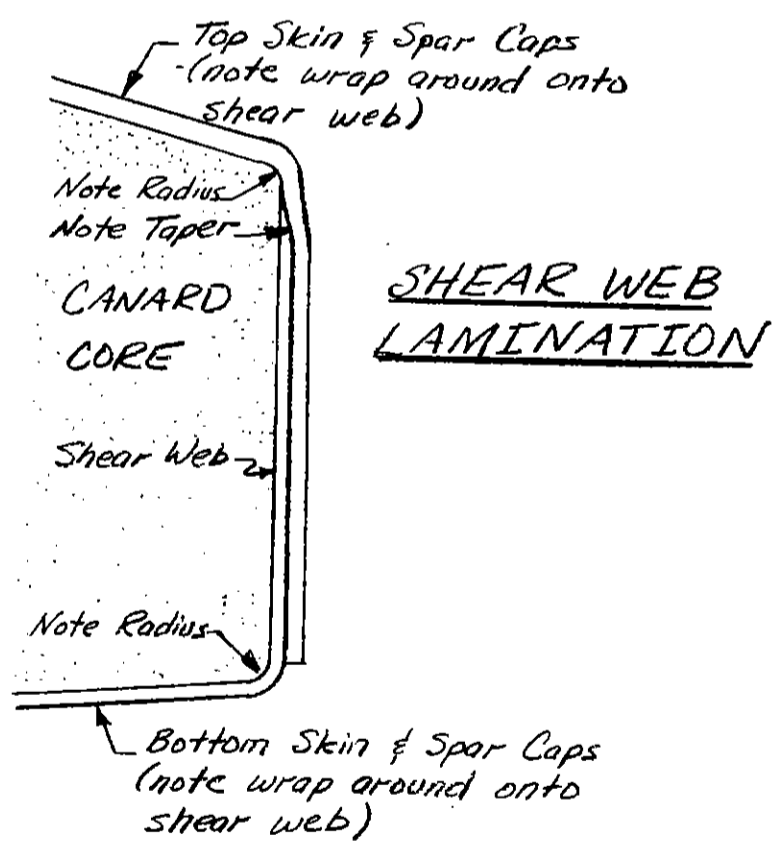 Top Skin & Spar Caps
(note wrap around onto
shear web)
Note Radius
Note Taper
CANARD
CORE
SHEAR WEB
LAMINATION
Shear Web
Note Radius
Bottom Skin & Spar Caps
(note wrap around onto
shear web)